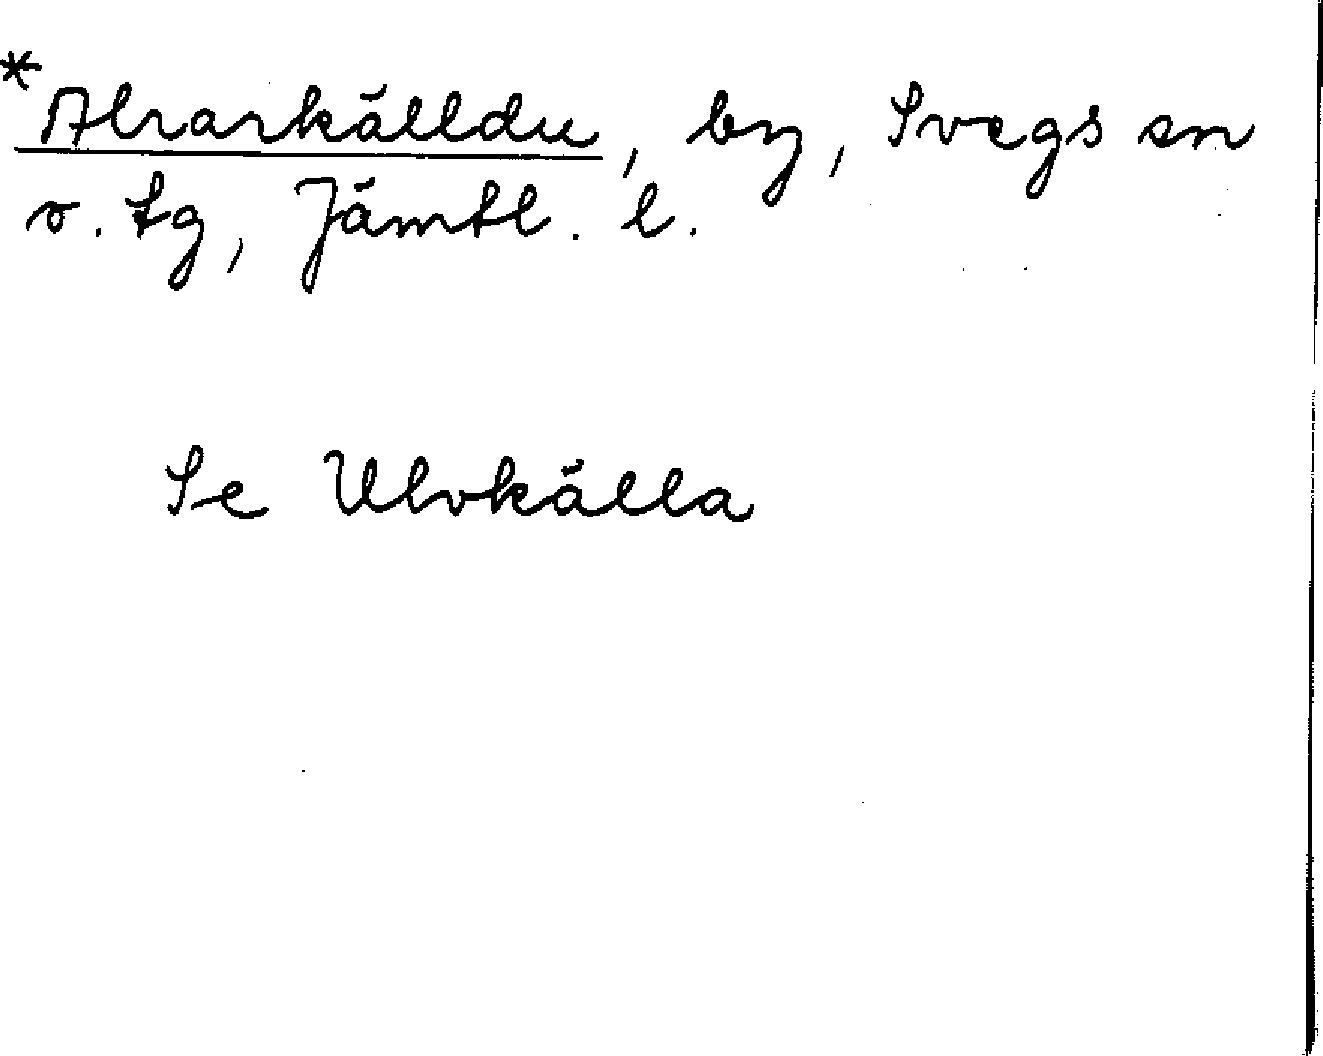 *Alrarkälldu, by, Svegs sn
v. tg, Jämtl. l.
Se Ulvkälla